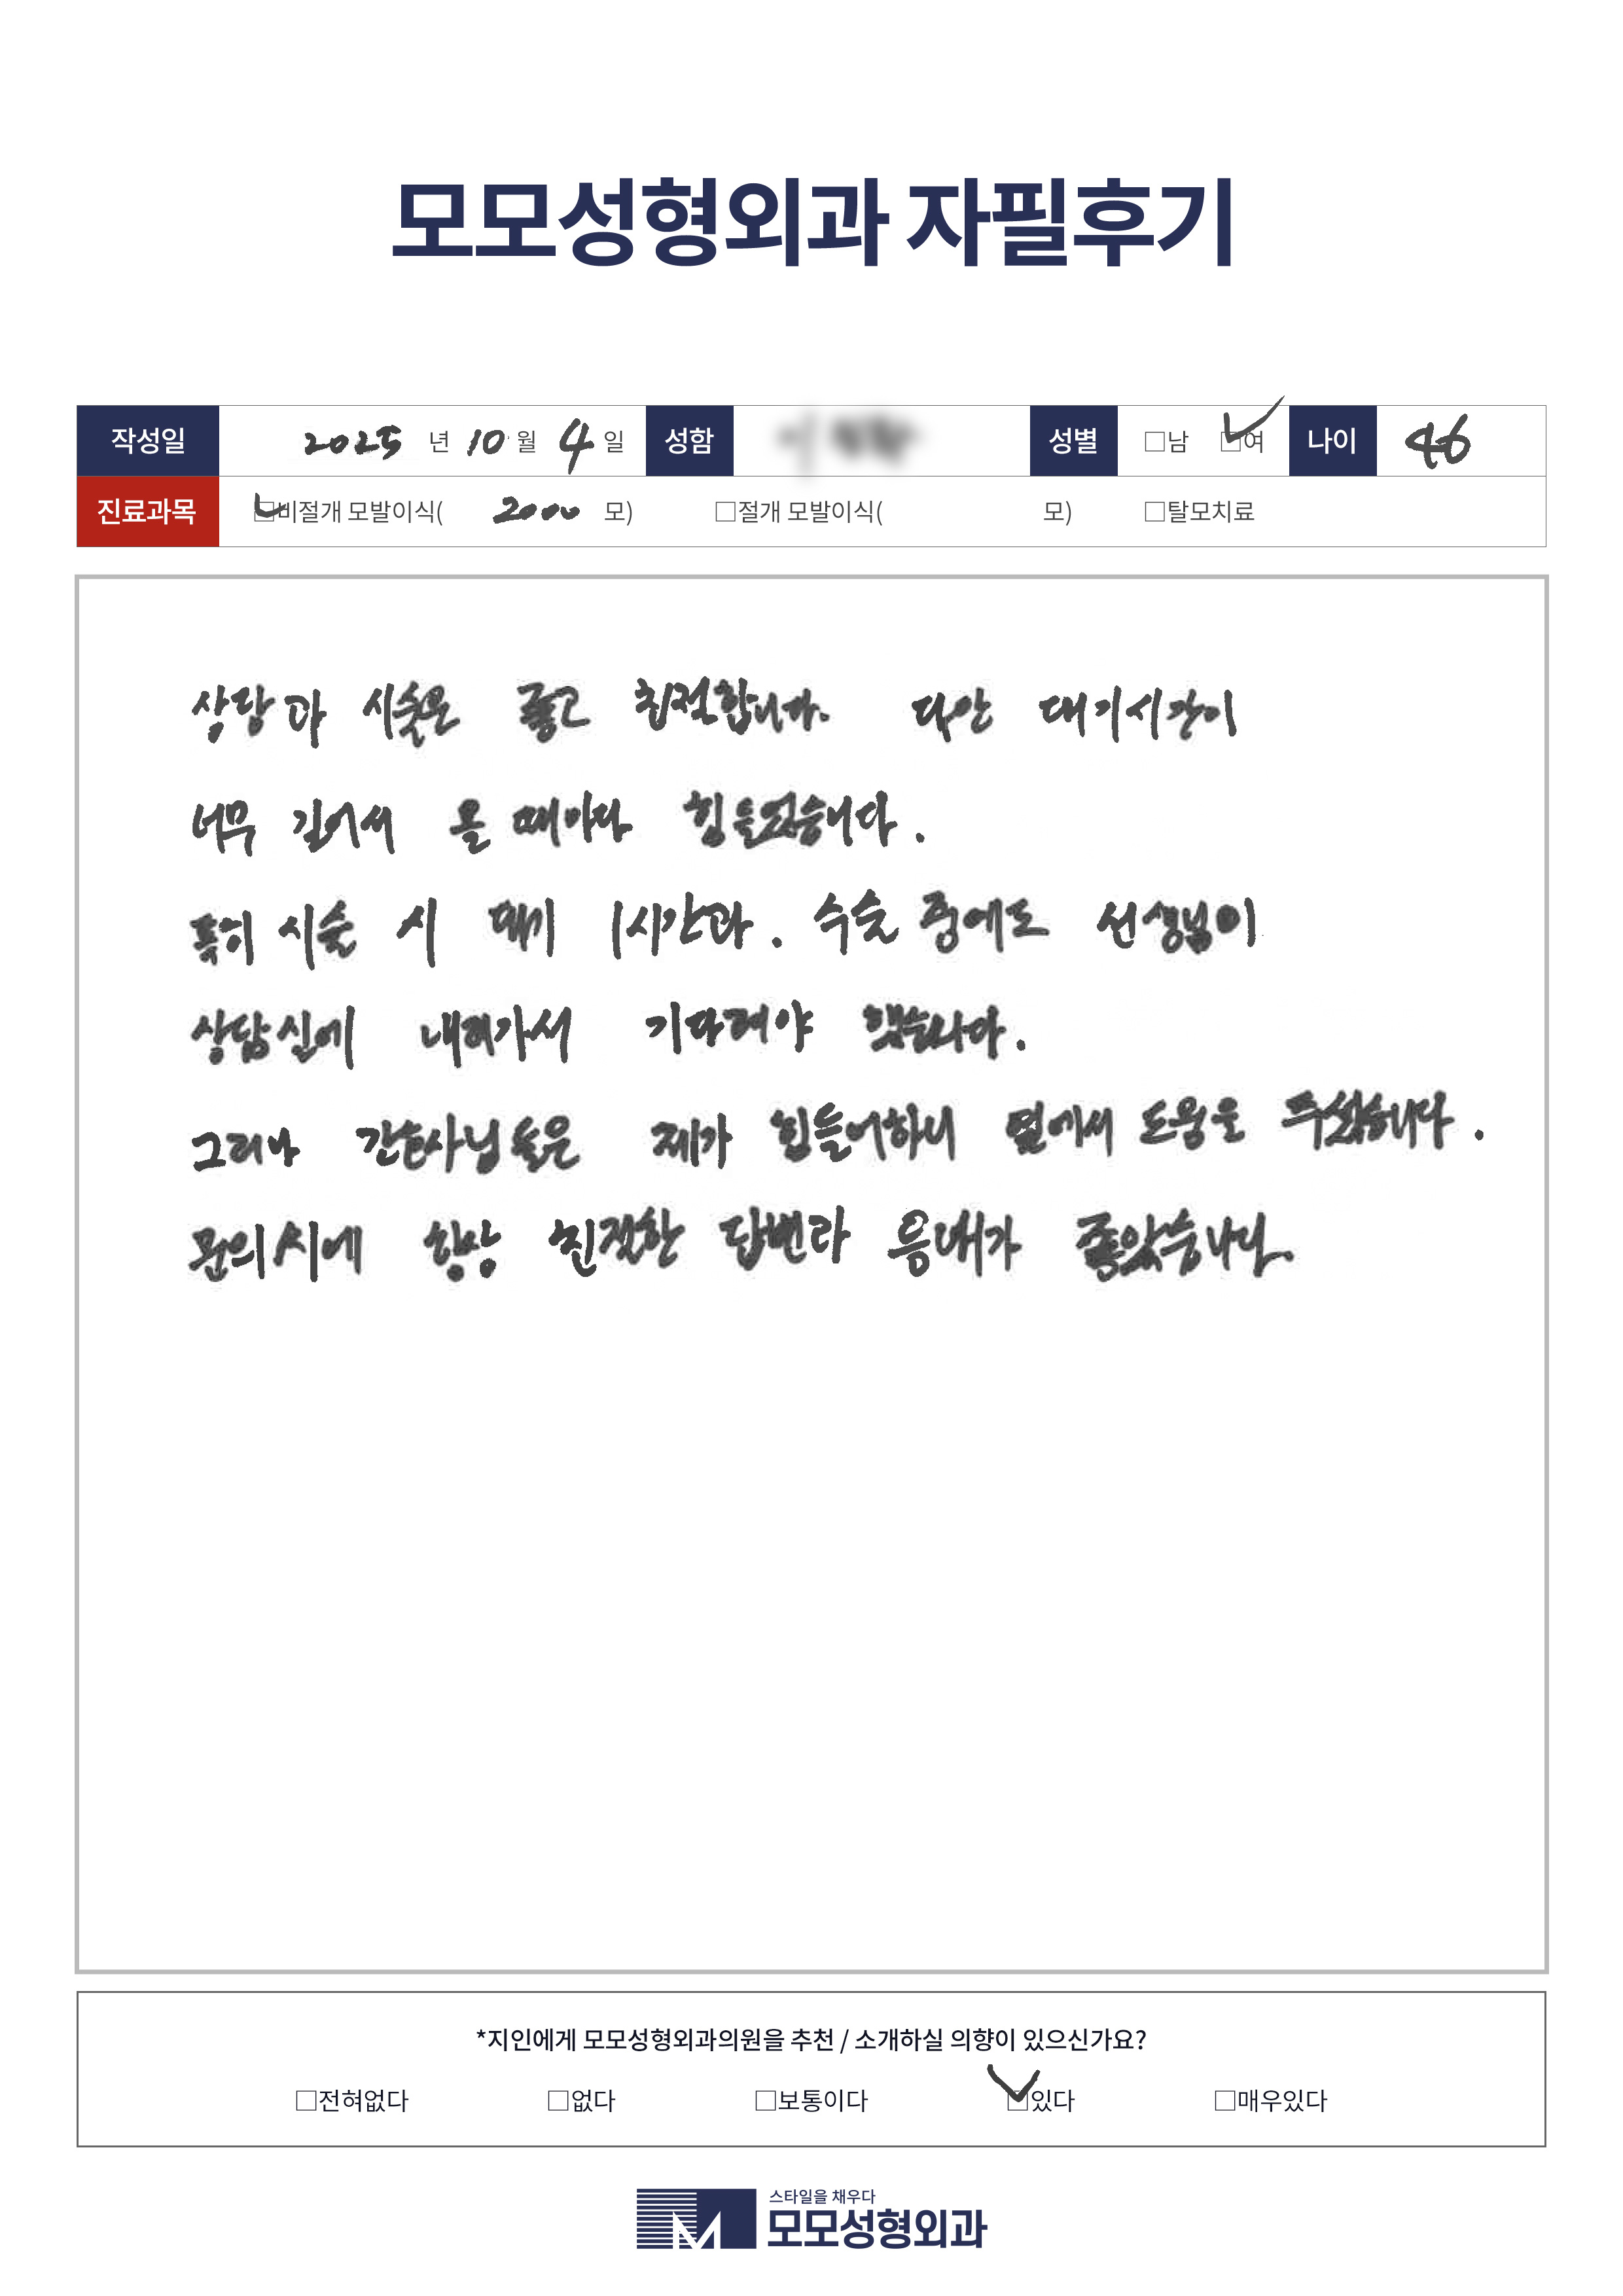 모모성형외과 자필후기
작성일 2025 년 10 월 4 일 성함 성별 □남 □여 나이 46
진료과목 □비절개 모발이식( 2000 모) □절개 모발이식( 모) □탈모치료
상담과 시술은 좋고 친절합니다. 다만 대기시간이
너무 길어서 올 때마다 힘들었습니다.
특히 시술 시 대기 1시간과. 수술 중에도 선생님이
상담실에 내려가서 기다려야 했습니다.
그러나 간호사님들은 제가 힘들어하니 옆에서 도움을 주셨습니다.
문의시에 항상 친절한 답변과 응대가 좋았습니다.
*지인에게 모모성형외과의원을 추천 / 소개하실 의향이 있으신가요?
□전혀없다 □없다 □보통이다 □있다 □매우있다
스타일을 채우다
모모성형외과